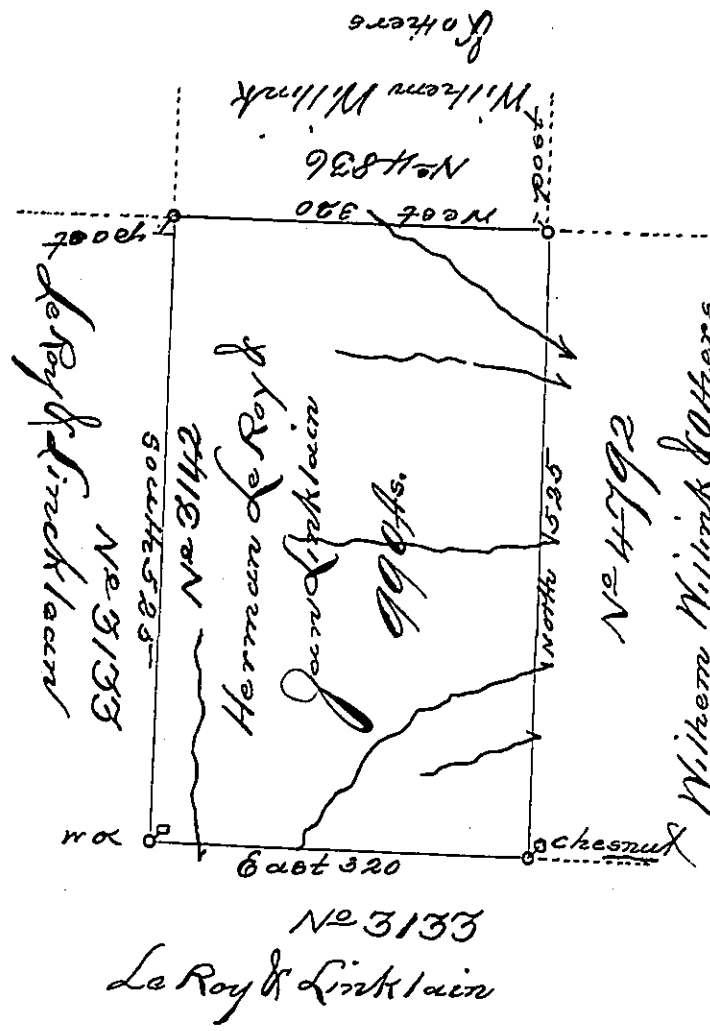 Wilhem Willink
& others
No 4836
West 320
post
post
LeRoy & Lincklaen
No 3133
South 525
No 3142
Herman Le Roy &
Jan Linklain
990 As.
North 525
No 4792
Wilhem Willink & Others
mo
Chesnut
East 320
No 3133
Le Roy & Linklain